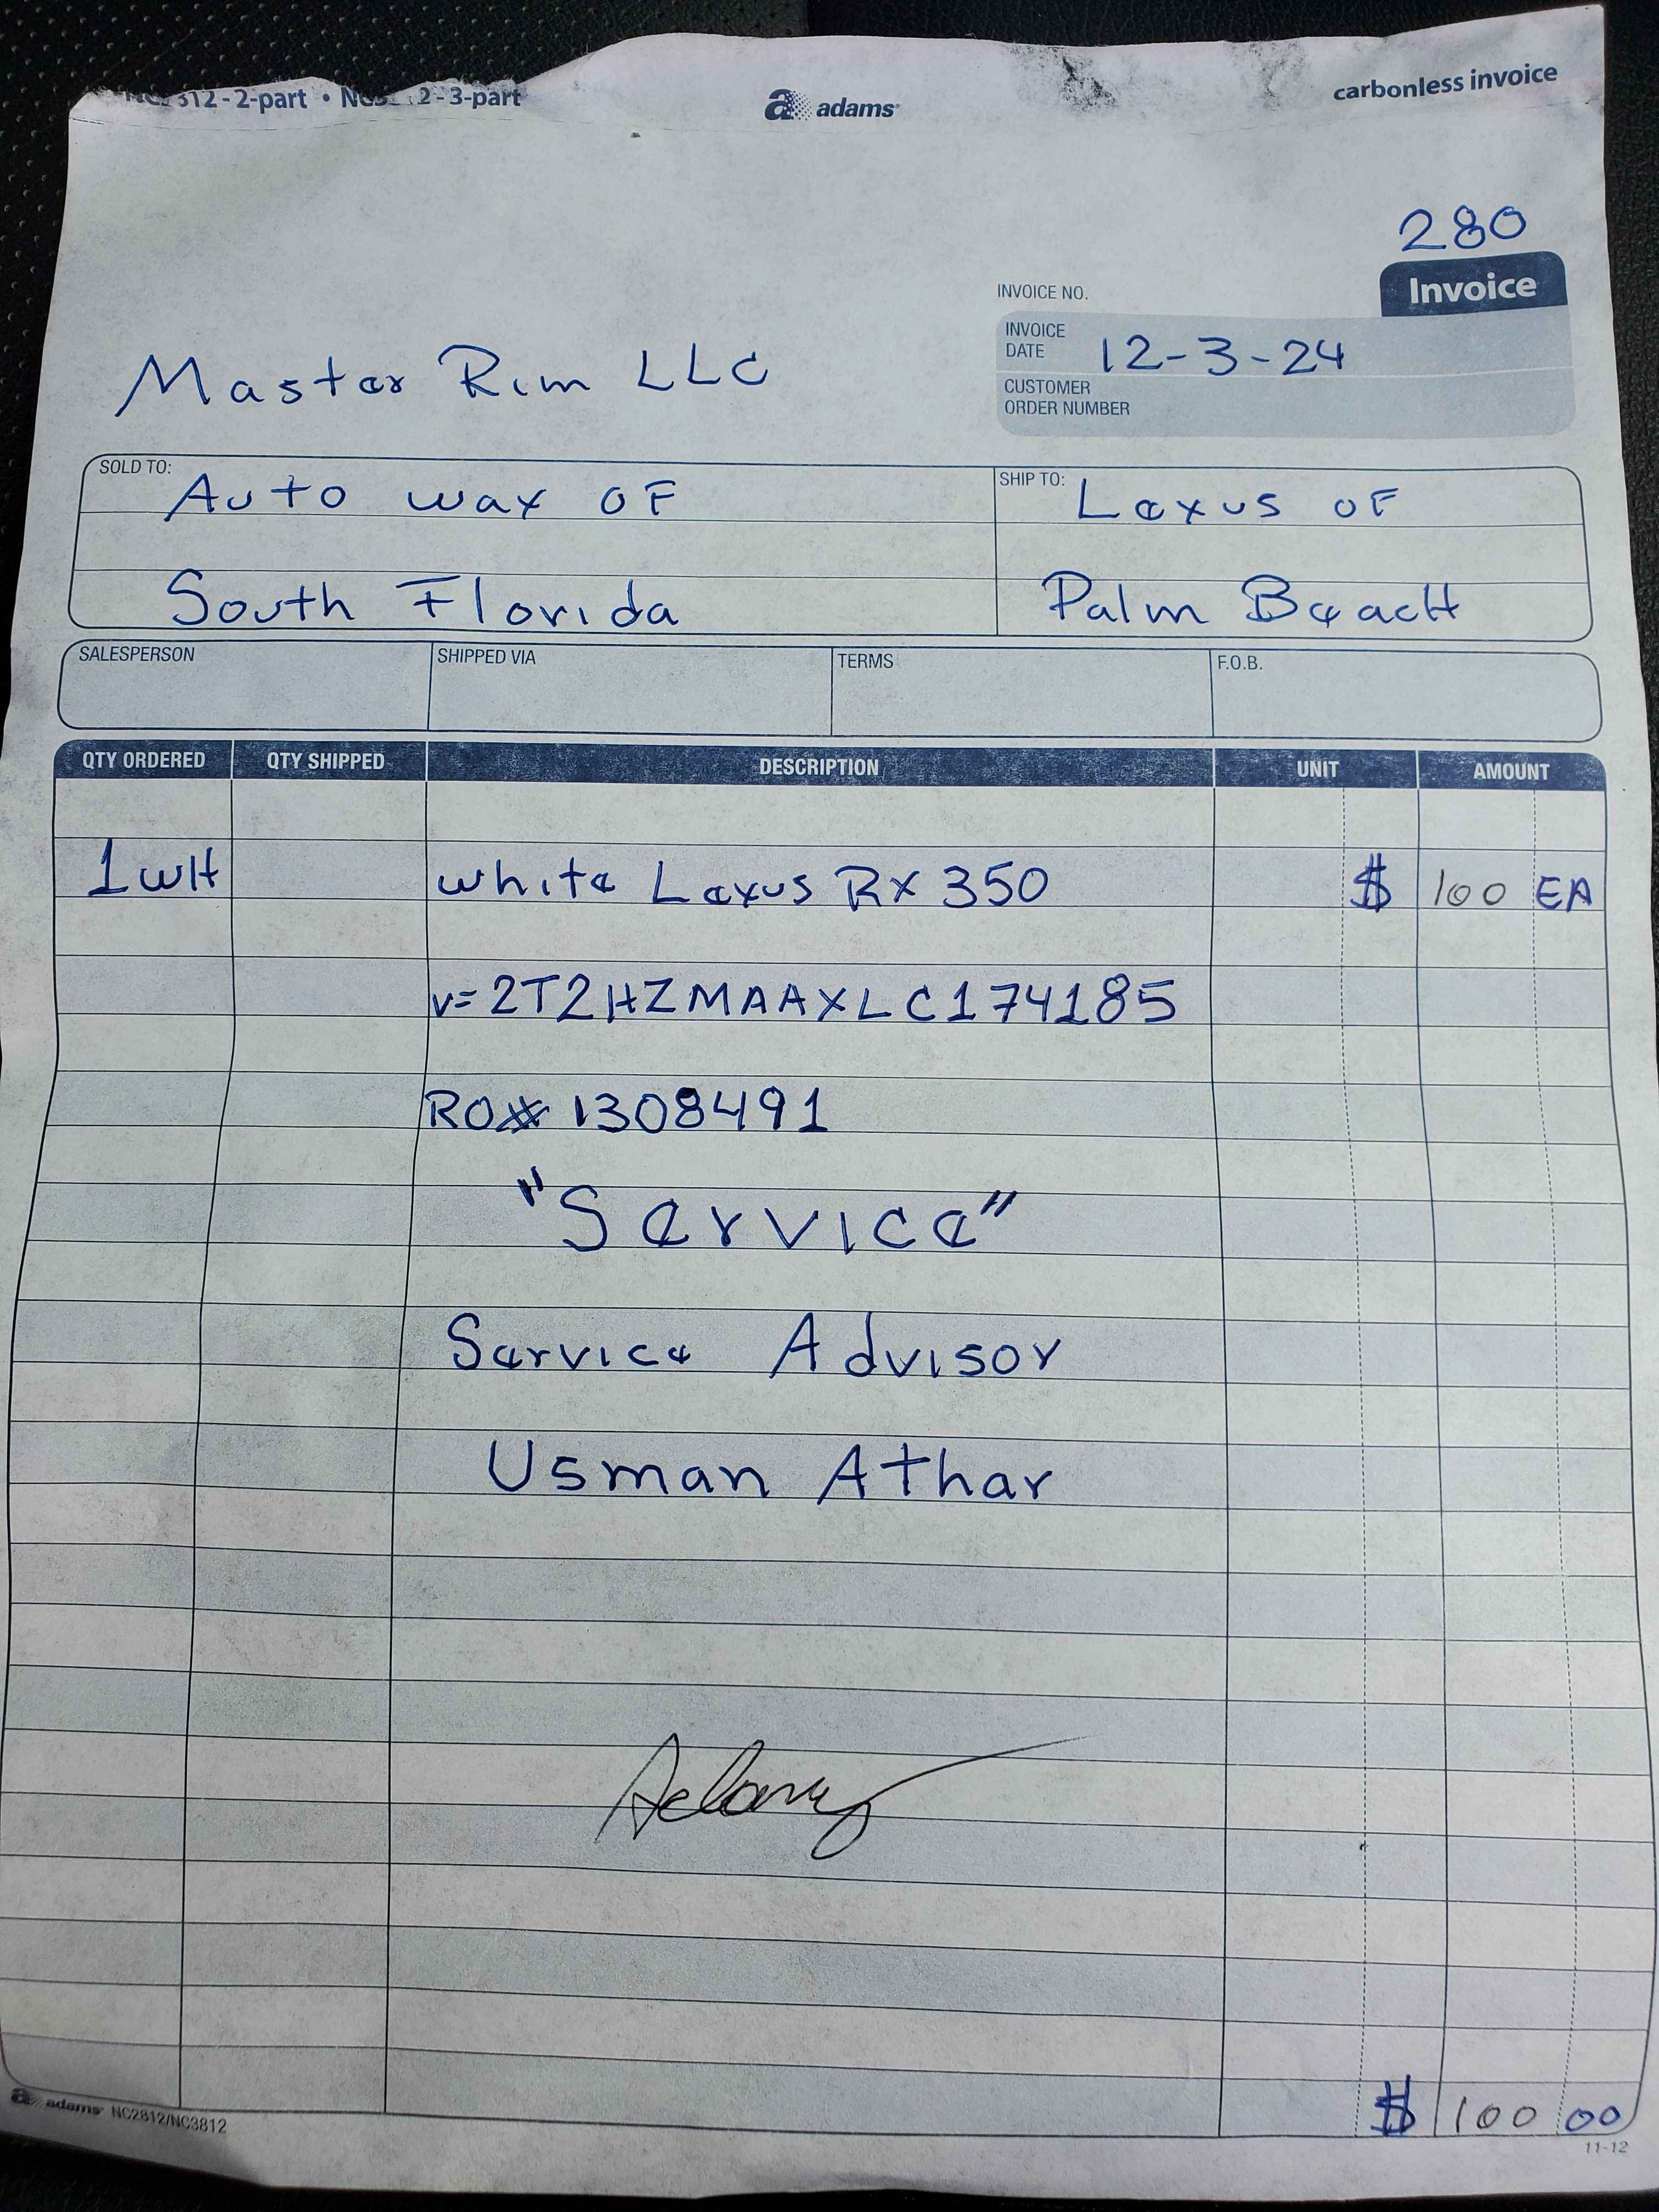 2-part • 2-3-part
adams
carbonless invoice
280
Invoice
INVOICE NO.
INVOICE DATE 12-3-24
CUSTOMER ORDER NUMBER
Master Rim LLC
SOLD TO: Auto wax OF
South Florida
SHIP TO: Lexus OF
Palm BeacH
SALESPERSON SHIPPED VIA TERMS F.O.B.
QTY ORDERED QTY SHIPPED DESCRIPTION UNIT AMOUNT
1 WH white Lexus RX 350 $ 100 EA
v=2T2HZMAAXLC174185
RO# 1308491
"Service"
Service Advisor
Usman Athar
$ 100 00
adams NC2812/NC3812
11-12